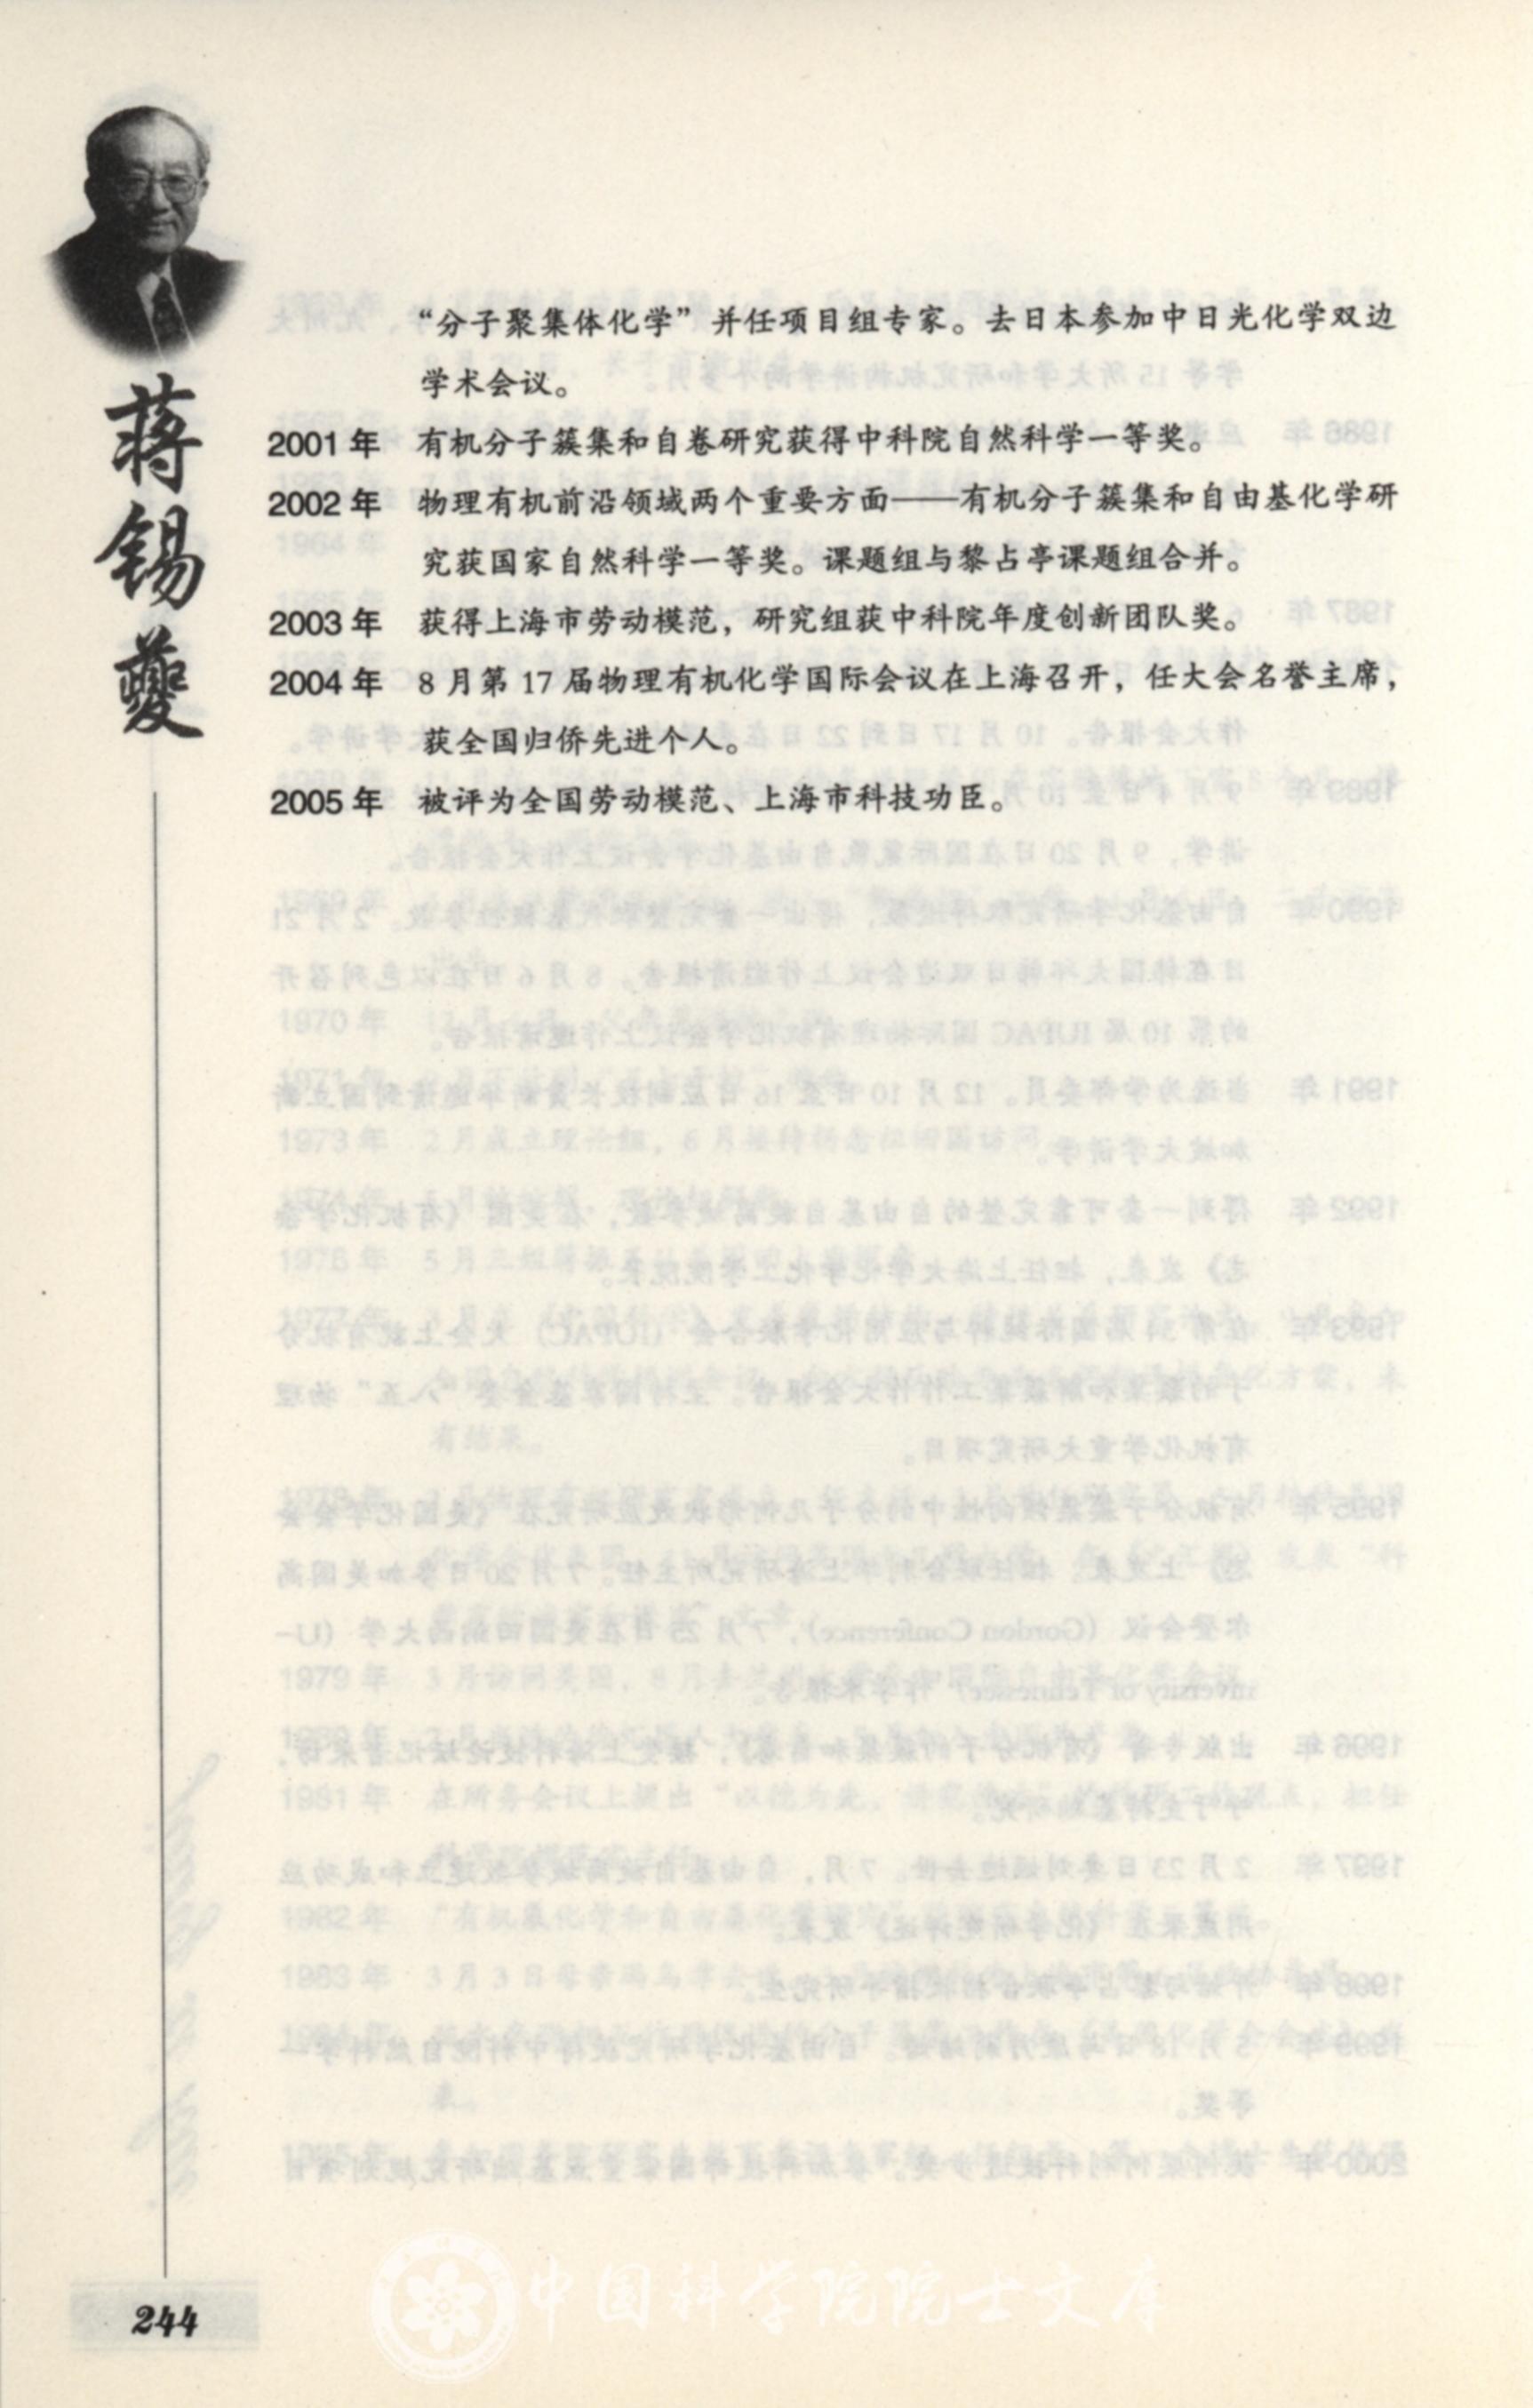 蒋锡夔
“分子聚集体化学”并任项目组专家。去日本参加中日光化学双边
学术会议。
2001年 有机分子簇集和自卷研究获得中科院自然科学一等奖。
2002年 物理有机前沿领域两个重要方面——有机分子簇集和自由基化学研
究获国家自然科学一等奖。课题组与黎占亭课题组合并。
2003年 获得上海市劳动模范，研究组获中科院年度创新团队奖。
2004年 8月第17届物理有机化学国际会议在上海召开，任大会名誉主席，
获全国归侨先进个人。
2005年 被评为全国劳动模范、上海市科技功臣。
244
中国科学院院士文库